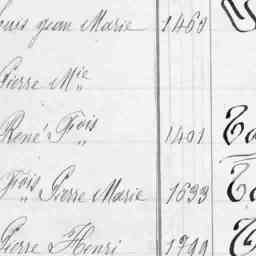 Jean Marie 1468
Pierre Mie
René Fois 1401
Fois Pierre Marie 1633
Pierre Henri 1799